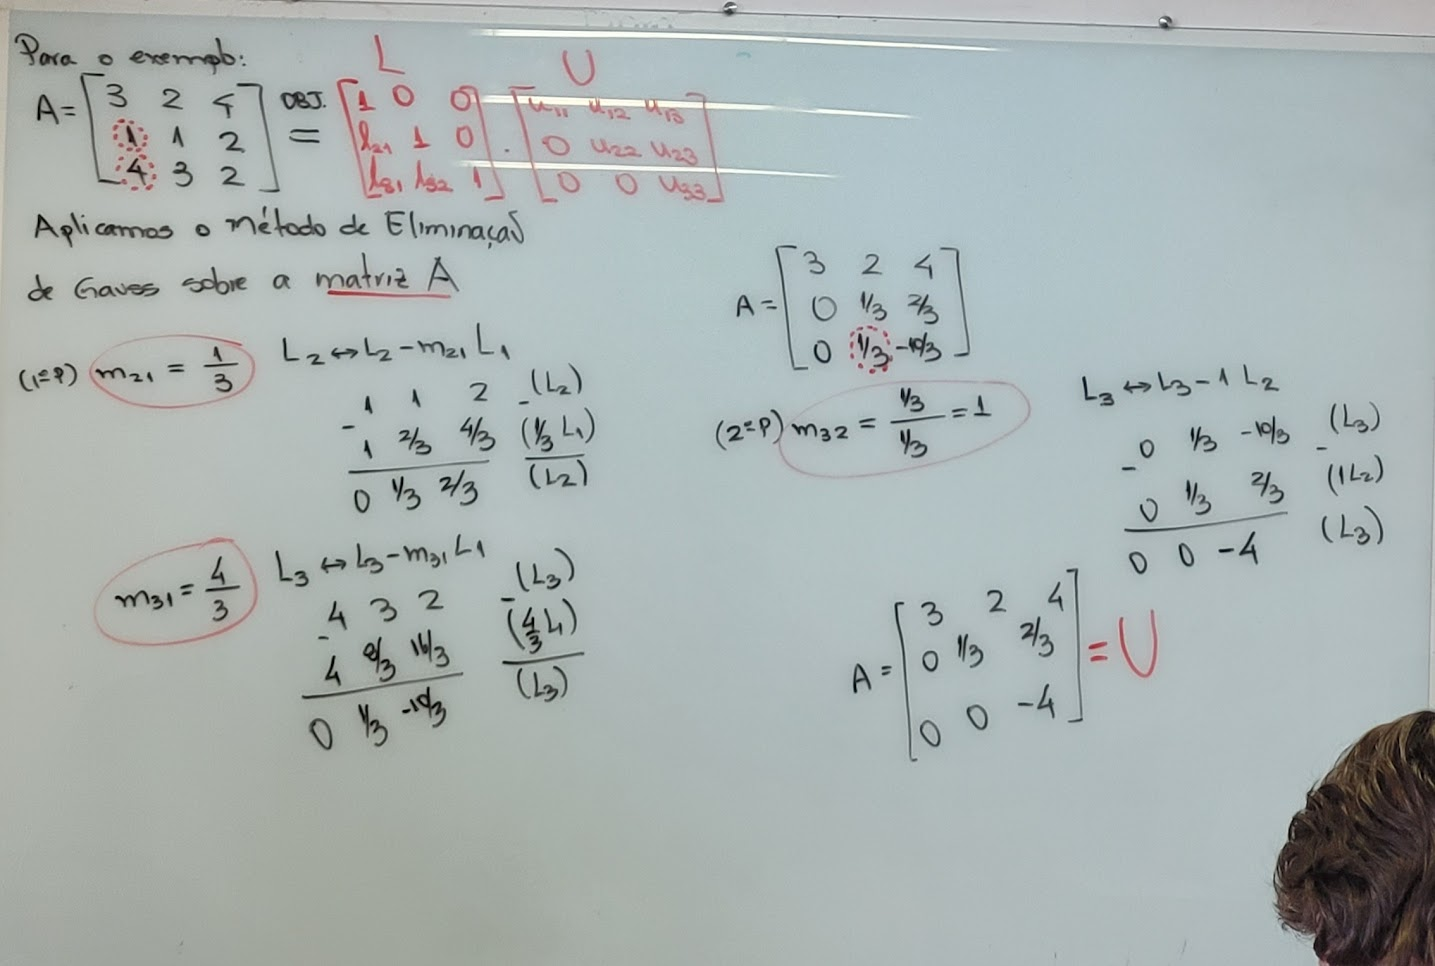 Para o exemplo:
L U
A = [3 2 4] OBJ. [1 0 0] [u11 u12 u13]
[1 1 2] = [l21 1 0] . [0 u22 u23]
[4 3 2] [l31 l32 1] [0 0 u33]
Aplicamos o método de Eliminação
de Gauss sobre a matriz A
(1ºP) m21 = 1/3 L2 ↔ L2 - m21 L1
- 1 1 2 - (L2)
1 2/3 4/3 (1/3 L1)
0 1/3 2/3 (L2)
m31 = 4/3 L3 ↔ L3 - m31 L1
- 4 3 2 - (L3)
4 8/3 16/3 (4/3 L1)
0 1/3 -10/3 (L3)
A = [3 2 4]
[0 1/3 2/3]
[0 1/3 -10/3]
(2ºP) m32 = 1/3 / 1/3 = 1 L3 ↔ L3 - 1 L2
- 0 1/3 -10/3 - (L3)
0 1/3 2/3 (1L2)
0 0 -4 (L3)
A = [3 2 4]
[0 1/3 2/3] = U
[0 0 -4]